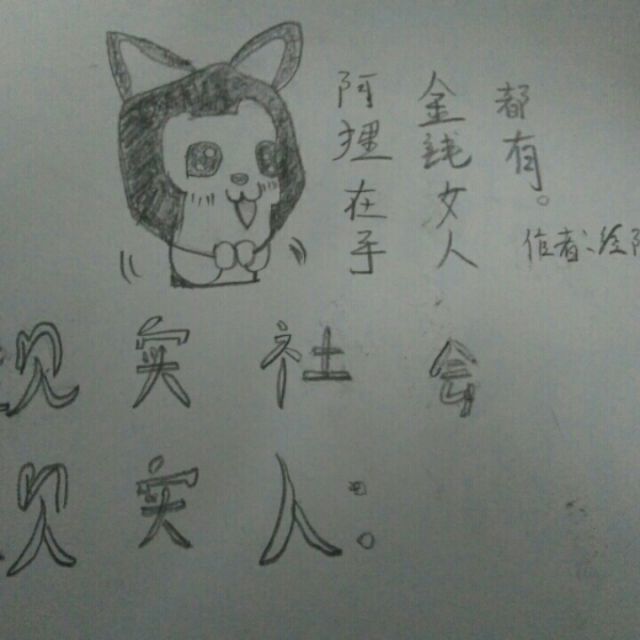 阿狸在手
金钱女人
都有。
作者:
现实社会
现实人。